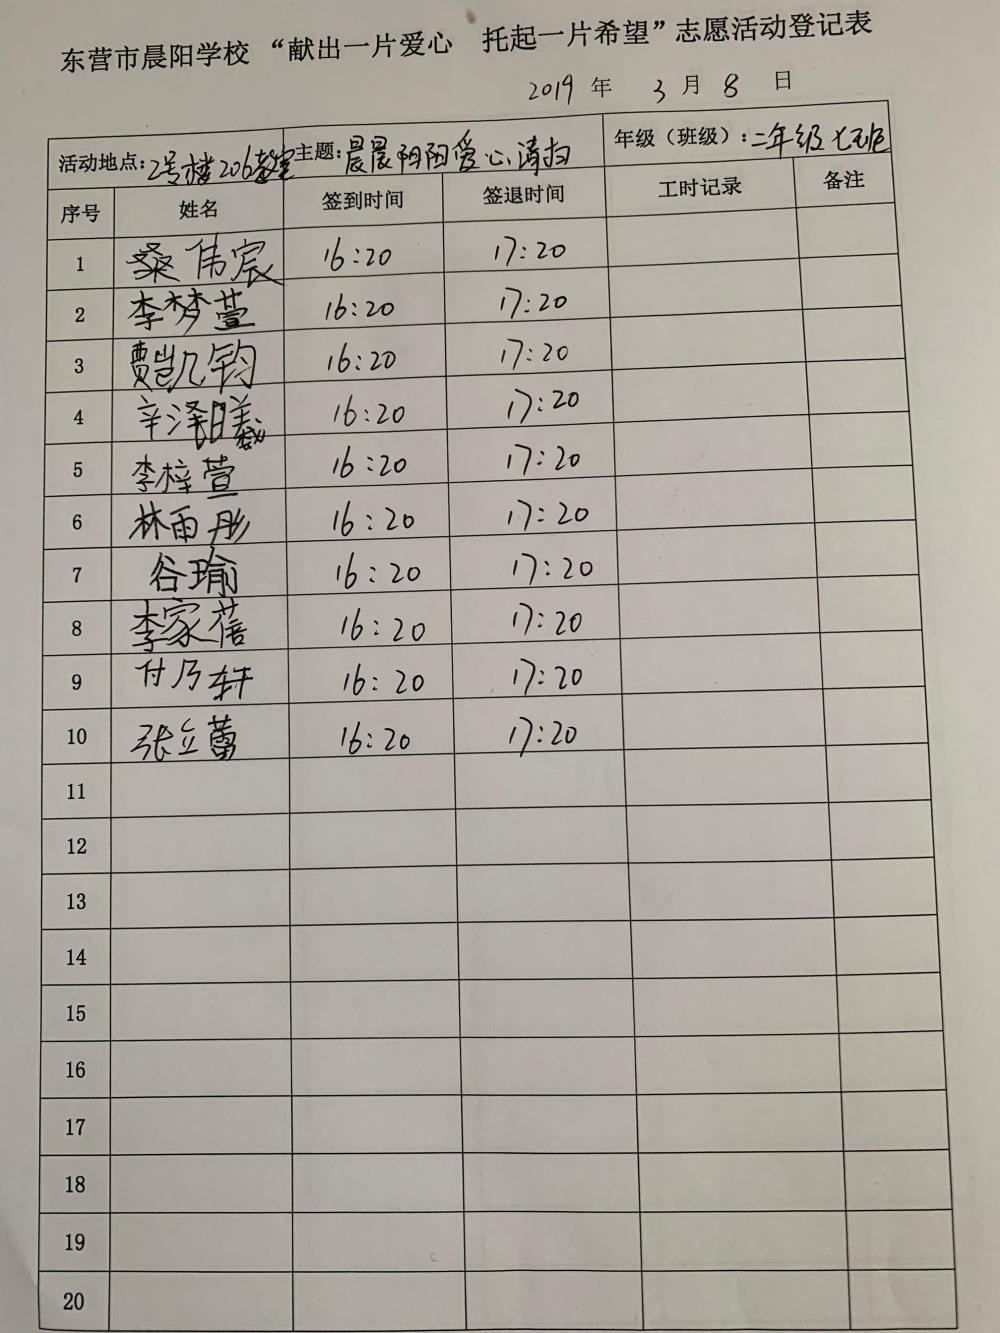 东营市晨阳学校 “献出一片爱心 托起一片希望”志愿活动登记表
2019 年 3 月 8 日
活动地点：2号楼206教室 主题：晨晨阳阳爱心清扫 年级（班级）：二年级七班
序号 姓名 签到时间 签退时间 工时记录 备注
1 桑伟宸 16:20 17:20
2 李梦萱 16:20 17:20
3 贾凯钧 16:20 17:20
4 辛泽曦 16:20 17:20
5 李梓萱 16:20 17:20
6 林雨彤 16:20 17:20
7 谷瑜 16:20 17:20
8 李家蓓 16:20 17:20
9 付乃轩 16:20 17:20
10 张立蕾 16:20 17:20
11
12
13
14
15
16
17
18
19
20